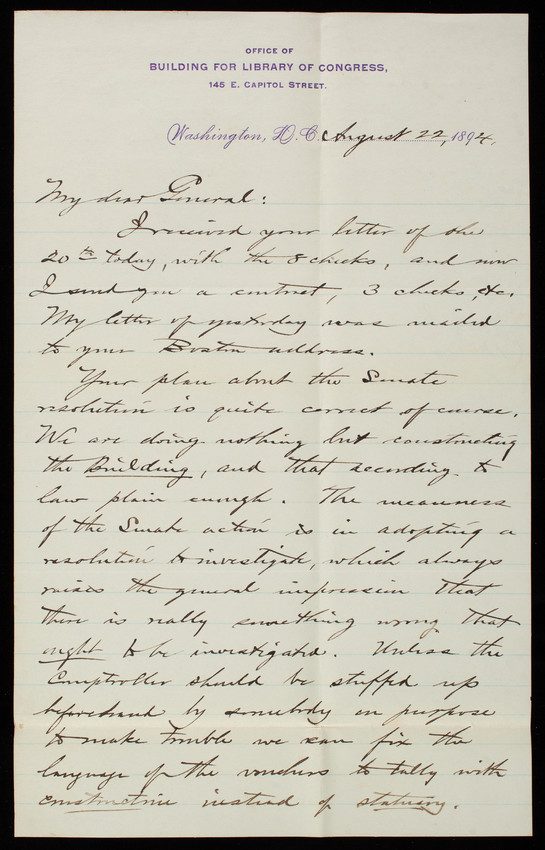 OFFICE OF
BUILDING FOR LIBRARY OF CONGRESS,
145 E. CAPITOL STREET.
Washington, D. C. August 22, 1894.
My dear General:
I received your letter of the
20th today, with the 8 checks, and now
I send you a contract, 3 checks, &c.
My letter of yesterday was mailed
to your Boston address.
Your plan about the Senate
resolution is quite correct of course.
We are doing nothing but constructing
the Building, and that according to
law plain enough. The meanness
of the Senate action is in adopting a
resolution to investigate, which always
raises the general impression that
there is really something wrong that
ought to be investigated. Unless the
Comptroller should be stuffed up
beforehand by somebody on purpose
to make trouble we can fix the
language of the vouchers to tally with
construction instead of statuary.